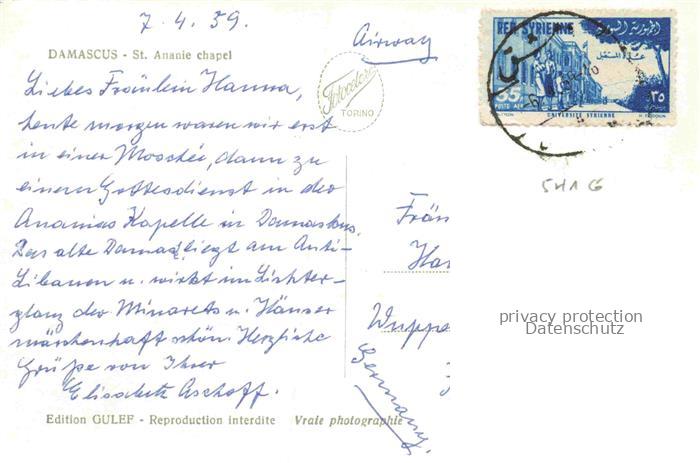 7.4.59.
Airway
DAMASCUS - St. Ananie chapel
Fotocelere
TORINO
Liebes Fräulein Hanna,
heute morgen waren wir erst
in einer Moschée, dann zu
einem Gottesdienst in der
Ananias Kapelle in Damaskus.
Das alte Damas liegt am Anti-
Libanon u. wirkt im Lichter-
glanz der Minarets u. Häuser
märchenhaft schön. Herzliche
Grüße von Ihrer
Elisabeth Aschoff.
Edition GULEF - Reproduction interdite Vraie photographie
REP. SYRIENNE
35
POSTE AER
٣٥
UNIVERSITE SYRIENNE
5H1G
Fräu
Han
Wuppe
Germany.
privacy protection
Datenschutz